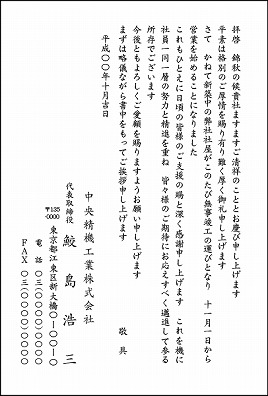 拝啓　錦秋の候貴社ますますご清祥のこととお慶び申し上げます
平素は格別のご厚情を賜り有り難く厚く御礼申し上げます
さて　かねて新築中の弊社社屋がこのたび無事竣工の運びとなり　十一月一日から
営業を始めることになりました
これもひとえに日頃の皆様のご支援の賜と深く感謝申し上げます　これを機に
社員一同一層の努力と精進を重ね　皆々様のご期待にお応えすべく邁進して参る
所存でございます
今後ともよろしくご愛顧を賜りますようお願い申し上げます
まずは略儀ながら書中をもってご挨拶申し上げます
敬具
平成〇〇年十月吉日
中央精機工業株式会社
代表取締役　鮫島浩三
〒135-0000
東京都江東区新大橋〇-〇〇-〇
電話〇三(〇〇〇〇)〇〇〇〇
FAX〇三(〇〇〇〇)〇〇〇〇